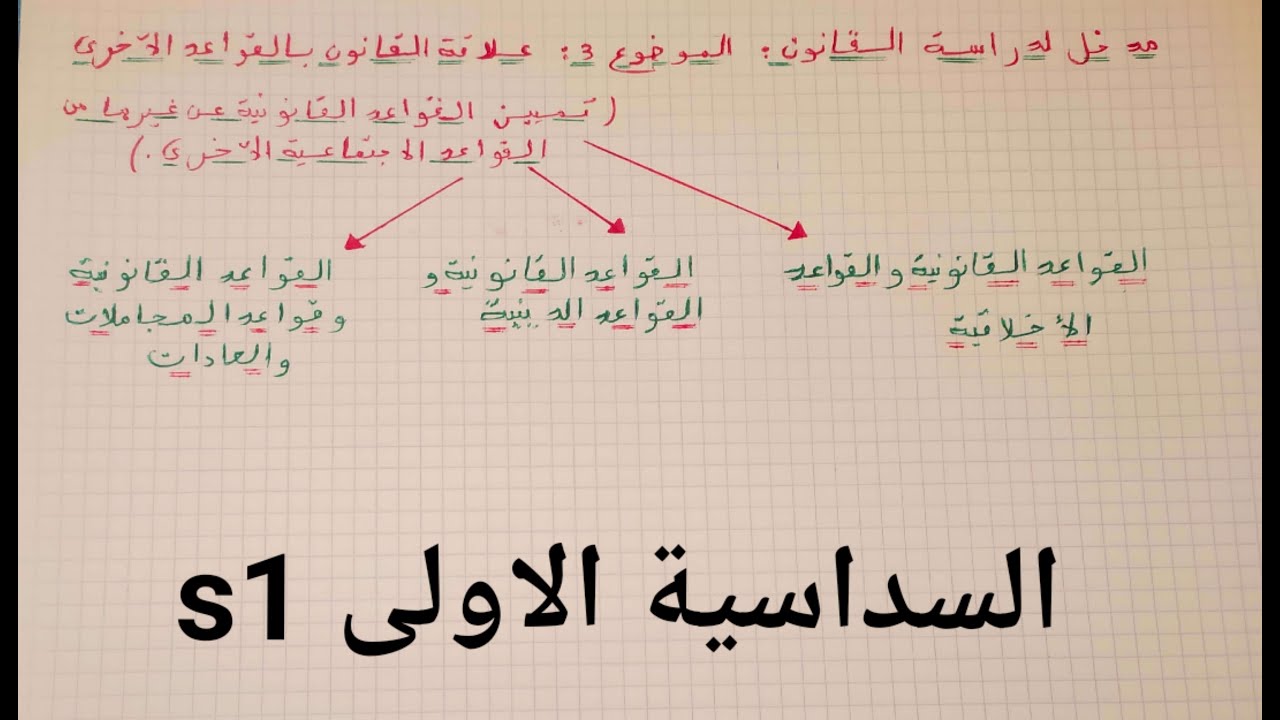 مدخل لدراسة القانون: الموضوع 3: علاقة القانون بالقواعد الأخرى
(تمييز القواعد القانونية عن غيرها من
القواعد الاجتماعية الأخرى.)
القواعد القانونية والقواعد
الأخلاقية
القواعد القانونية و
القواعد الدينية
القواعد القانونية
وقواعد المجاملات
والعادات
السداسية الاولى s1